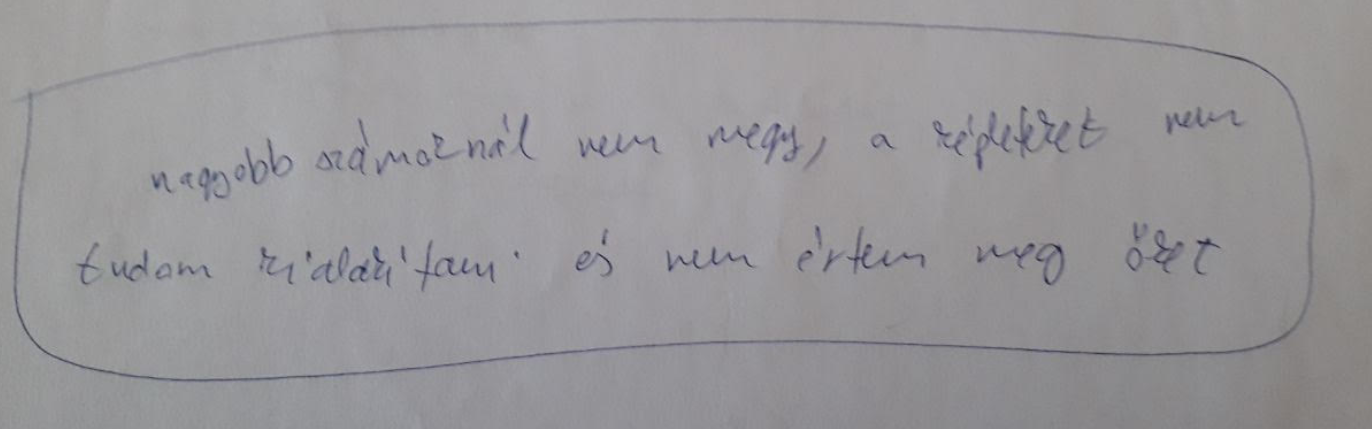 nagyobb számoknál nem megy, a képleteket nem
tudom kialakítani és nem értem meg őket